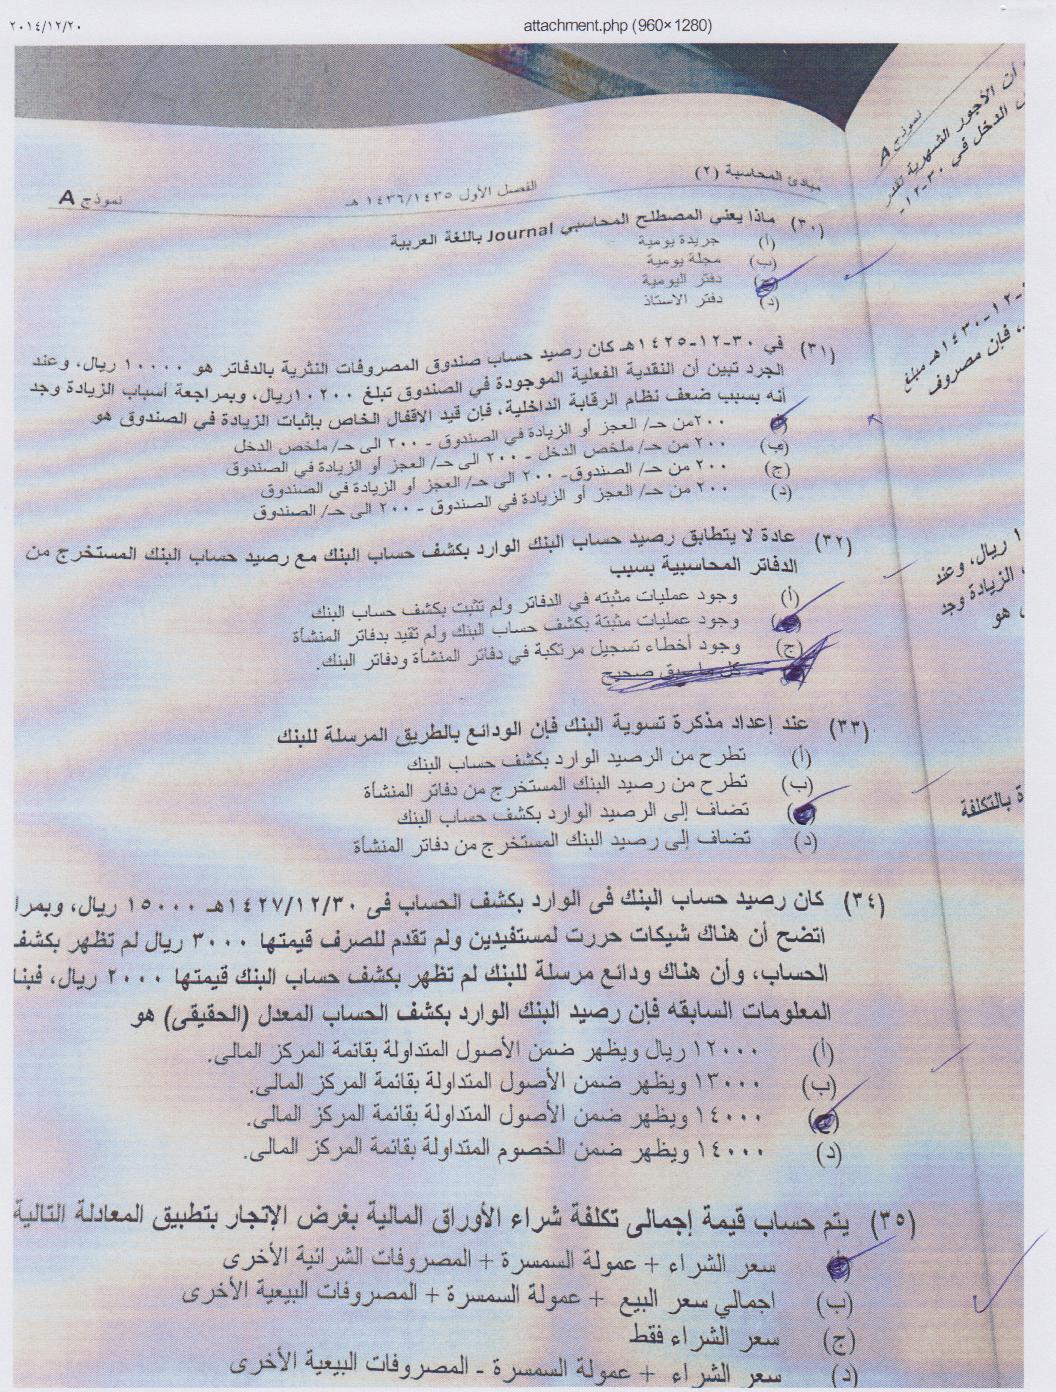 ٢٠١٤/١٢/٢٠
attachment.php (960×1280)
أن الأجور الشهرية تقدر
الدخل في ٣٠-١٢-
نموذج A
مبادئ المحاسبة (٢)
الفصل الأول ١٤٣٦/١٤٣٥ هـ
نموذج A
(٣٠) ماذا يعني المصطلح المحاسبي Journal باللغة العربية
(أ) جريدة يومية
(ب) مجلة يومية
(ج) دفتر اليومية
(د) دفتر الاستاذ
١٢-٣٠-١٤هـ مبلغ
، فإن مصروف
(٣١) في ٣٠-١٢-١٤٢٥هـ كان رصيد حساب صندوق المصروفات النثرية بالدفاتر هو ١٠٠٠٠ ريال، وعند
الجرد تبين أن النقدية الفعلية الموجودة في الصندوق تبلغ ١٠٢٠٠ريال، وبمراجعة أسباب الزيادة وجد
أنه بسبب ضعف نظام الرقابة الداخلية، فإن قيد الاقفال الخاص بإثبات الزيادة في الصندوق هو
٢٠٠من حـ/ العجز أو الزيادة في الصندوق - ٢٠٠ الى حـ/ ملخص الدخل
(ب) ٢٠٠ من حـ/ ملخص الدخل - ٢٠٠ الى حـ/ العجز أو الزيادة في الصندوق
(ج) ٢٠٠ من حـ/ الصندوق- ٢٠٠ الى حـ/ العجز أو الزيادة في الصندوق
(د) ٢٠٠ من حـ/ العجز أو الزيادة في الصندوق - ٢٠٠ الى حـ/ الصندوق
ريال، وعند
الزيادة وجد
هو
(٣٢) عادة لا يتطابق رصيد حساب البنك الوارد بكشف حساب البنك مع رصيد حساب البنك المستخرج من
الدفاتر المحاسبية بسبب
(أ) وجود عمليات مثبته في الدفاتر ولم تثبت بكشف حساب البنك
وجود عمليات مثبتة بكشف حساب البنك ولم تقيد بدفاتر المنشأة
(ج) وجود أخطاء تسجيل مرتكبة في دفاتر المنشأة ودفاتر البنك.
كل ما سبق صحيح
(٣٣) عند إعداد مذكرة تسوية البنك فإن الودائع بالطريق المرسلة للبنك
(أ) تطرح من الرصيد الوارد بكشف حساب البنك
(ب) تطرح من رصيد البنك المستخرج من دفاتر المنشأة
تضاف إلى الرصيد الوارد بكشف حساب البنك
(د) تضاف إلى رصيد البنك المستخرج من دفاتر المنشأة
ة بالتكلفة
(٣٤) كان رصيد حساب البنك فى الوارد بكشف الحساب فى ١٤٢٧/١٢/٣٠هـ ١٥٠٠٠ ريال، وبمرا
اتضح أن هناك شيكات حررت لمستفيدين ولم تقدم للصرف قيمتها ٣٠٠٠ ريال لم تظهر بكشف
الحساب، وأن هناك ودائع مرسلة للبنك لم تظهر بكشف حساب البنك قيمتها ٢٠٠٠ ريال، فبنا
المعلومات السابقه فإن رصيد البنك الوارد بكشف الحساب المعدل (الحقيقى) هو
(أ) ١٢٠٠٠ ريال ويظهر ضمن الأصول المتداولة بقائمة المركز المالى.
(ب) ١٣٠٠٠ ويظهر ضمن الأصول المتداولة بقائمة المركز المالى.
(ج) ١٤٠٠٠ ويظهر ضمن الأصول المتداولة بقائمة المركز المالى.
(د) ١٤٠٠٠ ويظهر ضمن الخصوم المتداولة بقائمة المركز المالى.
(٣٥) يتم حساب قيمة إجمالى تكلفة شراء الأوراق المالية بغرض الإتجار بتطبيق المعادلة التالية
سعر الشراء + عمولة السمسرة + المصروفات الشرائية الأخرى
(ب) اجمالي سعر البيع + عمولة السمسرة + المصروفات البيعية الأخرى
(ج) سعر الشراء فقط
(د) سعر الشراء + عمولة السمسرة - المصروفات البيعية الأخرى